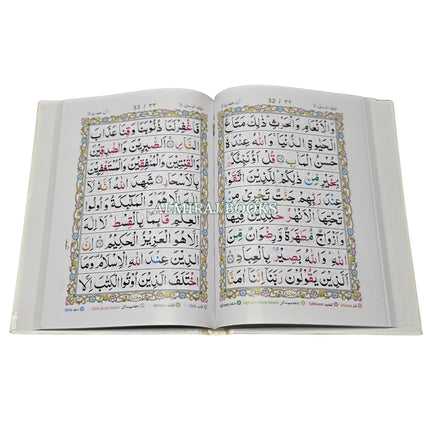 تلك الرسل ٣
32 / ٣٢
آل عمران ٣
وَالْاَنْعَامِ وَالْحَرْثِ ذٰلِكَ مَتَاعُ
الْحَيٰوةِ الدُّنْيَا وَاللّٰهُ عِنْدَهٗ
حُسْنُ الْمَاٰبِ قُلْ اَؤُنَبِّئُكُمْ
بِخَيْرٍ مِّنْ ذٰلِكُمْ لِلَّذِيْنَ اتَّقَوْا
عِنْدَ رَبِّهِمْ جَنّٰتٌ تَجْرِيْ مِنْ
تَحْتِهَا الْاَنْهٰرُ خٰلِدِيْنَ فِيْهَا
وَاَزْوَاجٌ مُّطَهَّرَةٌ وَّرِضْوَانٌ مِّنَ
اللّٰهِ وَاللّٰهُ بَصِيْرٌۢ بِالْعِبَادِ
اَلَّذِيْنَ يَقُوْلُوْنَ رَبَّنَآ اِنَّنَآ اٰمَنَّا
تلك الرسل ٣
33 / ٣٣
آل عمران ٣
فَاغْفِرْ لَنَا ذُنُوْبَنَا وَقِنَا عَذَابَ
النَّارِ اَلصّٰبِرِيْنَ وَالصّٰدِقِيْنَ
وَالْقٰنِتِيْنَ وَالْمُنْفِقِيْنَ وَالْمُسْتَغْفِرِيْنَ
بِالْاَسْحَارِ شَهِدَ اللّٰهُ اَنَّهٗ لَآ
اِلٰهَ اِلَّا هُوَ وَالْمَلٰٓئِكَةُ وَاُولُوا
الْعِلْمِ قَآئِمًۢا بِالْقِسْطِ لَآ اِلٰهَ
اِلَّا هُوَ الْعَزِيْزُ الْحَكِيْمُ اِنَّ
الدِّيْنَ عِنْدَ اللّٰهِ الْاِسْلَامُ وَمَا
اخْتَلَفَ الَّذِيْنَ اُوْتُوا الْكِتٰبَ اِلَّا
ALMIRAJ BOOKS